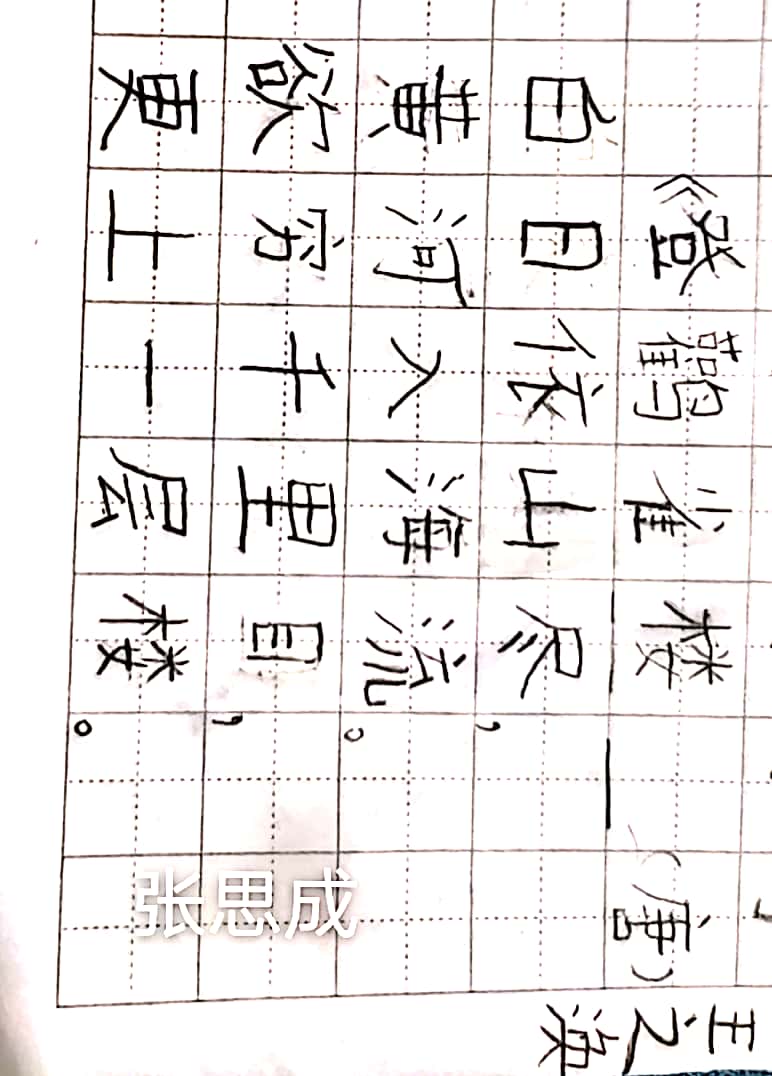 《登鹳雀楼——(唐)王之涣
白日依山尽,
黄河入海流。
欲穷千里目,
更上一层楼。
张思成